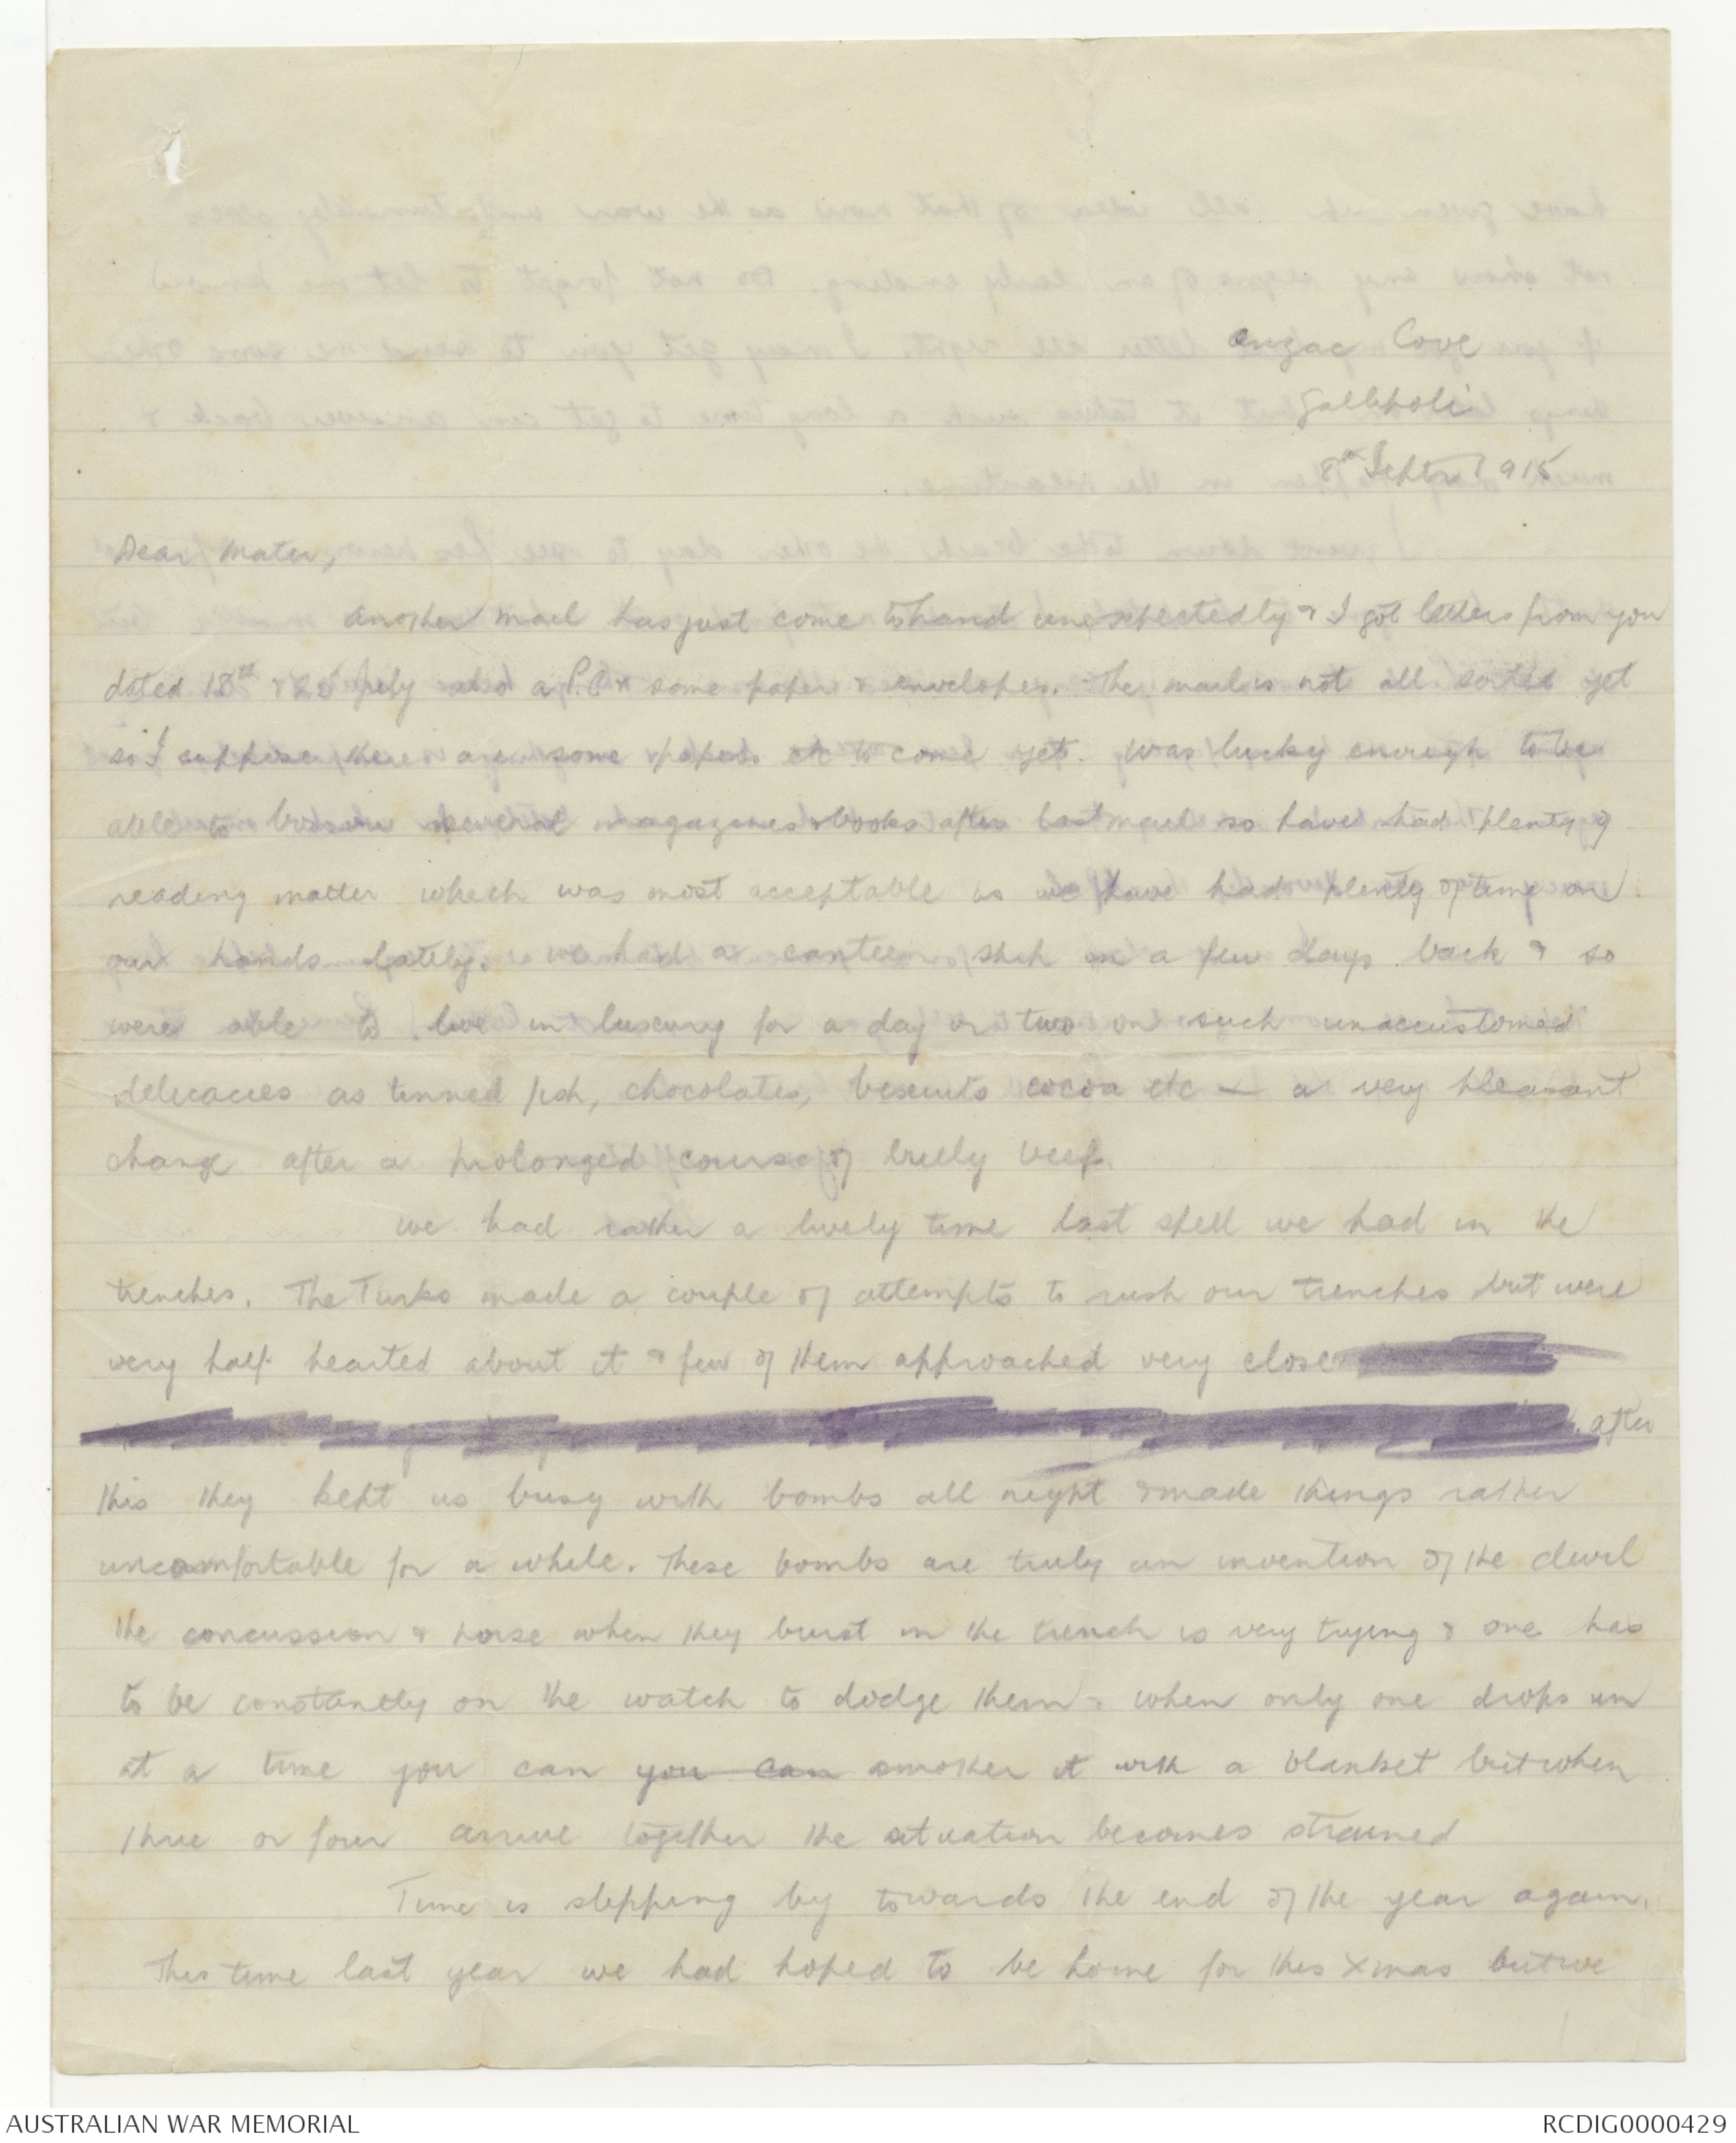 Anzac Cove
Gallipoli
8th Septr 1915
Dear Mater,
Another mail has just come to hand unexpectedly & I got letters from you
dated 18th & 25 July also a P.C & some paper & envelopes. The mail is not all sorted yet
so I suppose there are some papers etc to come yet. Was lucky enough to be
able to borrow several magazines & books after last mail so have had plenty of
reading matter which was most acceptable as we have had plenty of time on
our hands lately. We had a canteen ship in a few days back & so
were able to live in luxury for a day or two on such unaccustomed
delicacies as tinned fish, chocolates, biscuits cocoa etc — a very pleasant
change after a prolonged course of bully beef.
We had rather a lively time last spell we had in the
trenches. The Turks made a couple of attempts to rush our trenches but were
very half hearted about it & few of them approached very close
after
this they kept us busy with bombs all night & made things rather
uncomfortable for a while. These bombs are truly an invention of the devil
the concussion & noise when they burst in the trench is very trying & one has
to be constantly on the watch to dodge them. When only one drops in
at a time you can you can smother it with a blanket but when
three or four arrive together the situation becomes strained
Time is slipping by towards the end of the year again.
This time last year we had hoped to be home for this Xmas but we
AUSTRALIAN WAR MEMORIAL
RCDIG0000429